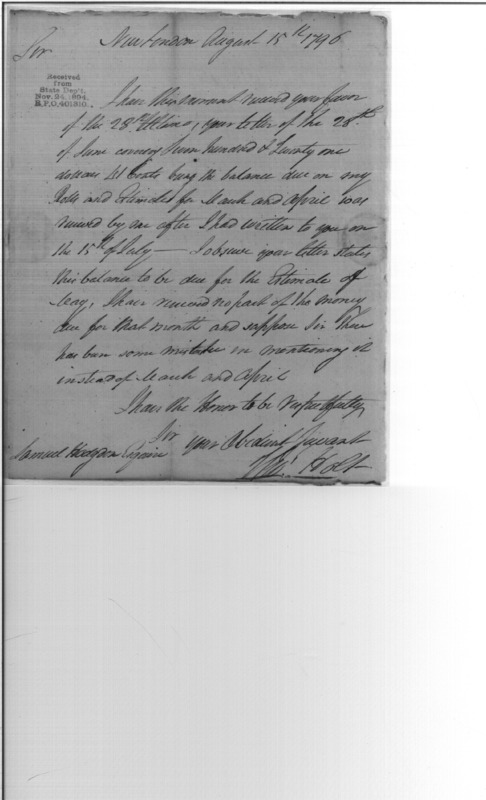 New London August 15th 1796
Sir
Received
from
State Dep't.
Nov. 24, 1894,
R.P.O. 401310.
I have this moment received your favor
of the 28th Ultimo, your letter of the 28th
of June covering Seven hundred & Twenty one
dollars 21 Cents being the balance due on my
Rolls and Estimates for March and April was
received by me after I had written to you on
the 15th of July — I observe your letter states
this balance to be due for the Estimate of
May, I have received no part of the money
due for that month and suppose Sir There
has been some mistake in mentioning it
instead of March and April
I have the Honor to be respectfully,
Sir your Obedient Servant
Samuel Hodgdon Esquire
Holt